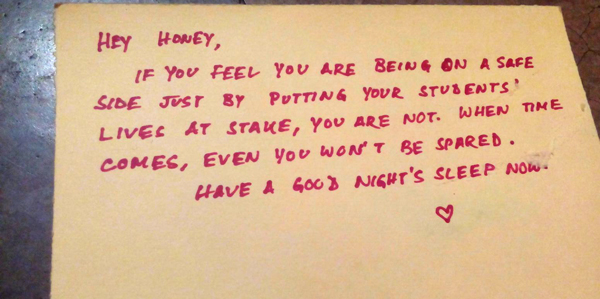 HEY HONEY,
IF YOU FEEL YOU ARE BEING ON A SAFE
SIDE JUST BY PUTTING YOUR STUDENTS'
LIVES AT STAKE, YOU ARE NOT. WHEN TIME
COMES, EVEN YOU WON'T BE SPARED.
HAVE A GOOD NIGHT'S SLEEP NOW.
♡